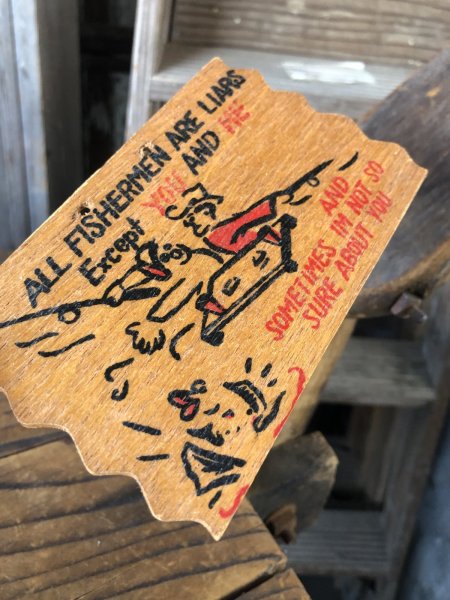 ALL FISHERMEN ARE LIARS
Except YOU AND ME
AND
SOMETIMES IM NOT SO
SURE ABOUT YOU